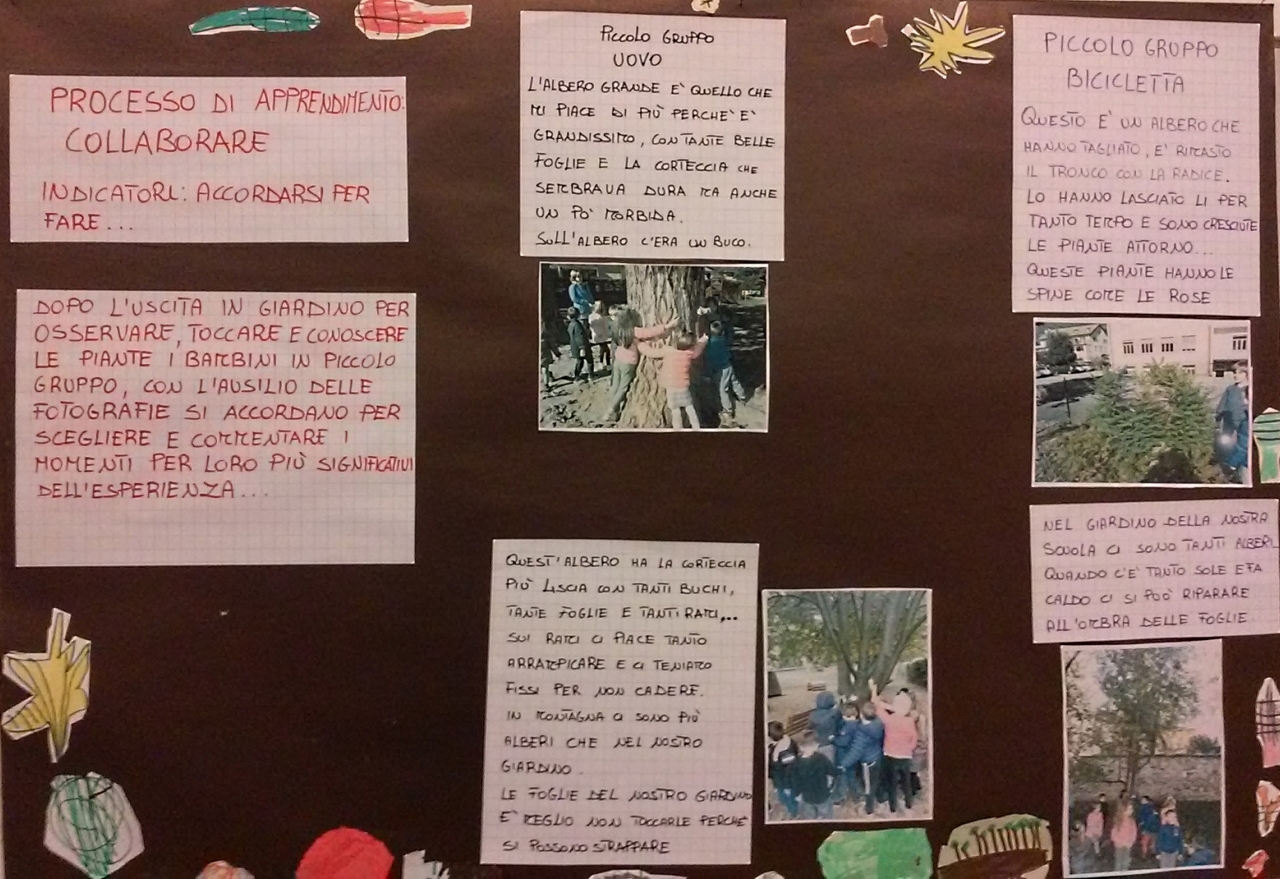 PROCESSO DI APPRENDIMENTO:
COLLABORARE
INDICATORI: ACCORDARSI PER
FARE...
DOPO L'USCITA IN GIARDINO PER
OSSERVARE, TOCCARE E CONOSCERE
LE PIANTE I BAMBINI IN PICCOLO
GRUPPO, CON L'AUSILIO DELLE
FOTOGRAFIE SI ACCORDANO PER
SCEGLIERE E COMMENTARE I
MOMENTI PER LORO PIÙ SIGNIFICATIVI
DELL'ESPERIENZA...
PICCOLO GRUPPO
UOVO
L'ALBERO GRANDE E' QUELLO CHE
MI PIACE DI PIÙ PERCHE' E'
GRANDISSIMO, CON TANTE BELLE
FOGLIE E LA CORTECCIA CHE
SEMBRAVA DURA MA ANCHE
UN PO' MORBIDA.
SULL'ALBERO C'ERA UN BUCO.
QUEST'ALBERO HA LA CORTECCIA
PIÙ LISCIA CON TANTI BUCHI,
TANTE FOGLIE E TANTI RAMI,...
SUI RAMI CI PIACE TANTO
ARRAMPICARE E CI TENIAMO
FISSI PER NON CADERE.
IN MONTAGNA CI SONO PIÙ
ALBERI CHE NEL NOSTRO
GIARDINO.
LE FOGLIE DEL NOSTRO GIARDINO
E' MEGLIO NON TOCCARLE PERCHE'
SI POSSONO STRAPPARE
PICCOLO GRUPPO
BICICLETTA
QUESTO E' UN ALBERO CHE
HANNO TAGLIATO, E' RIMASTO
IL TRONCO CON LA RADICE.
LO HANNO LASCIATO LI PER
TANTO TEMPO E SONO CRESCIUTE
LE PIANTE ATTORNO...
QUESTE PIANTE HANNO LE
SPINE COME LE ROSE
NEL GIARDINO DELLA NOSTRA
SCUOLA CI SONO TANTI ALBERI
QUANDO C'E' TANTO SOLE E FA
CALDO CI SI PUÒ RIPARARE
ALL'OMBRA DELLE FOGLIE